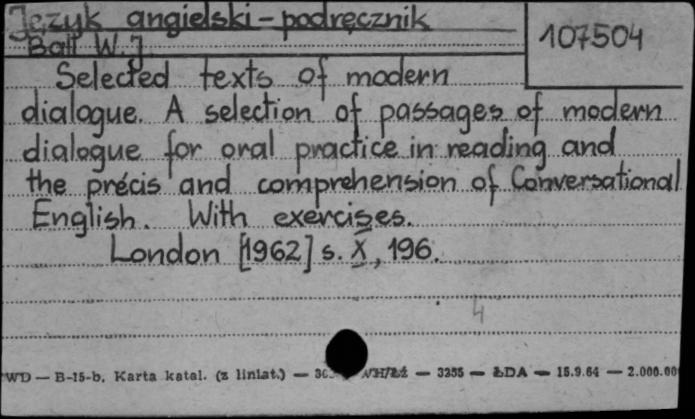 Język angielski - podręcznik
107504
Ball W. J.
Selected texts of modern
dialogue. A selection of passages of modern
dialogue for oral practice in reading and
the précis and comprehension of Conversational
English. With exercises.
London [1962] s. X, 196.
4
WD — B-15-b. Karta katal. (z liniat.) — WH/Łż — 3255 — ŁDA — 15.9.64 — 2.000.00